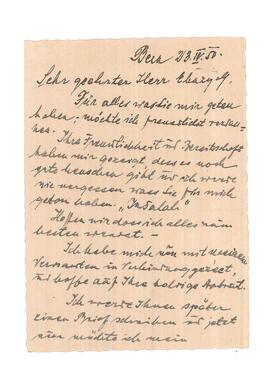 Bern 23.IV.50.
Sehr geehrter Herr
Für alles was Sie mir getan
haben, möchte ich freundlichst verdan-
ken. Ihre Freundlichkeit u. Bereitschaft
haben mir gezeigt, dass es noch
gute Menschen gibt und ich werde
nie vergessen was Sie für mich
getan haben.
Hoffen wir dass ich alles zum
besten wendet. –
Ich habe mich nun mit meinen
Verwandten in Verbindung gesetzt,
und hoffe auf Ihre baldige Antwort.
Ich werde Ihnen später
einen Brief schreiben und jetzt
nur möchte ich mein